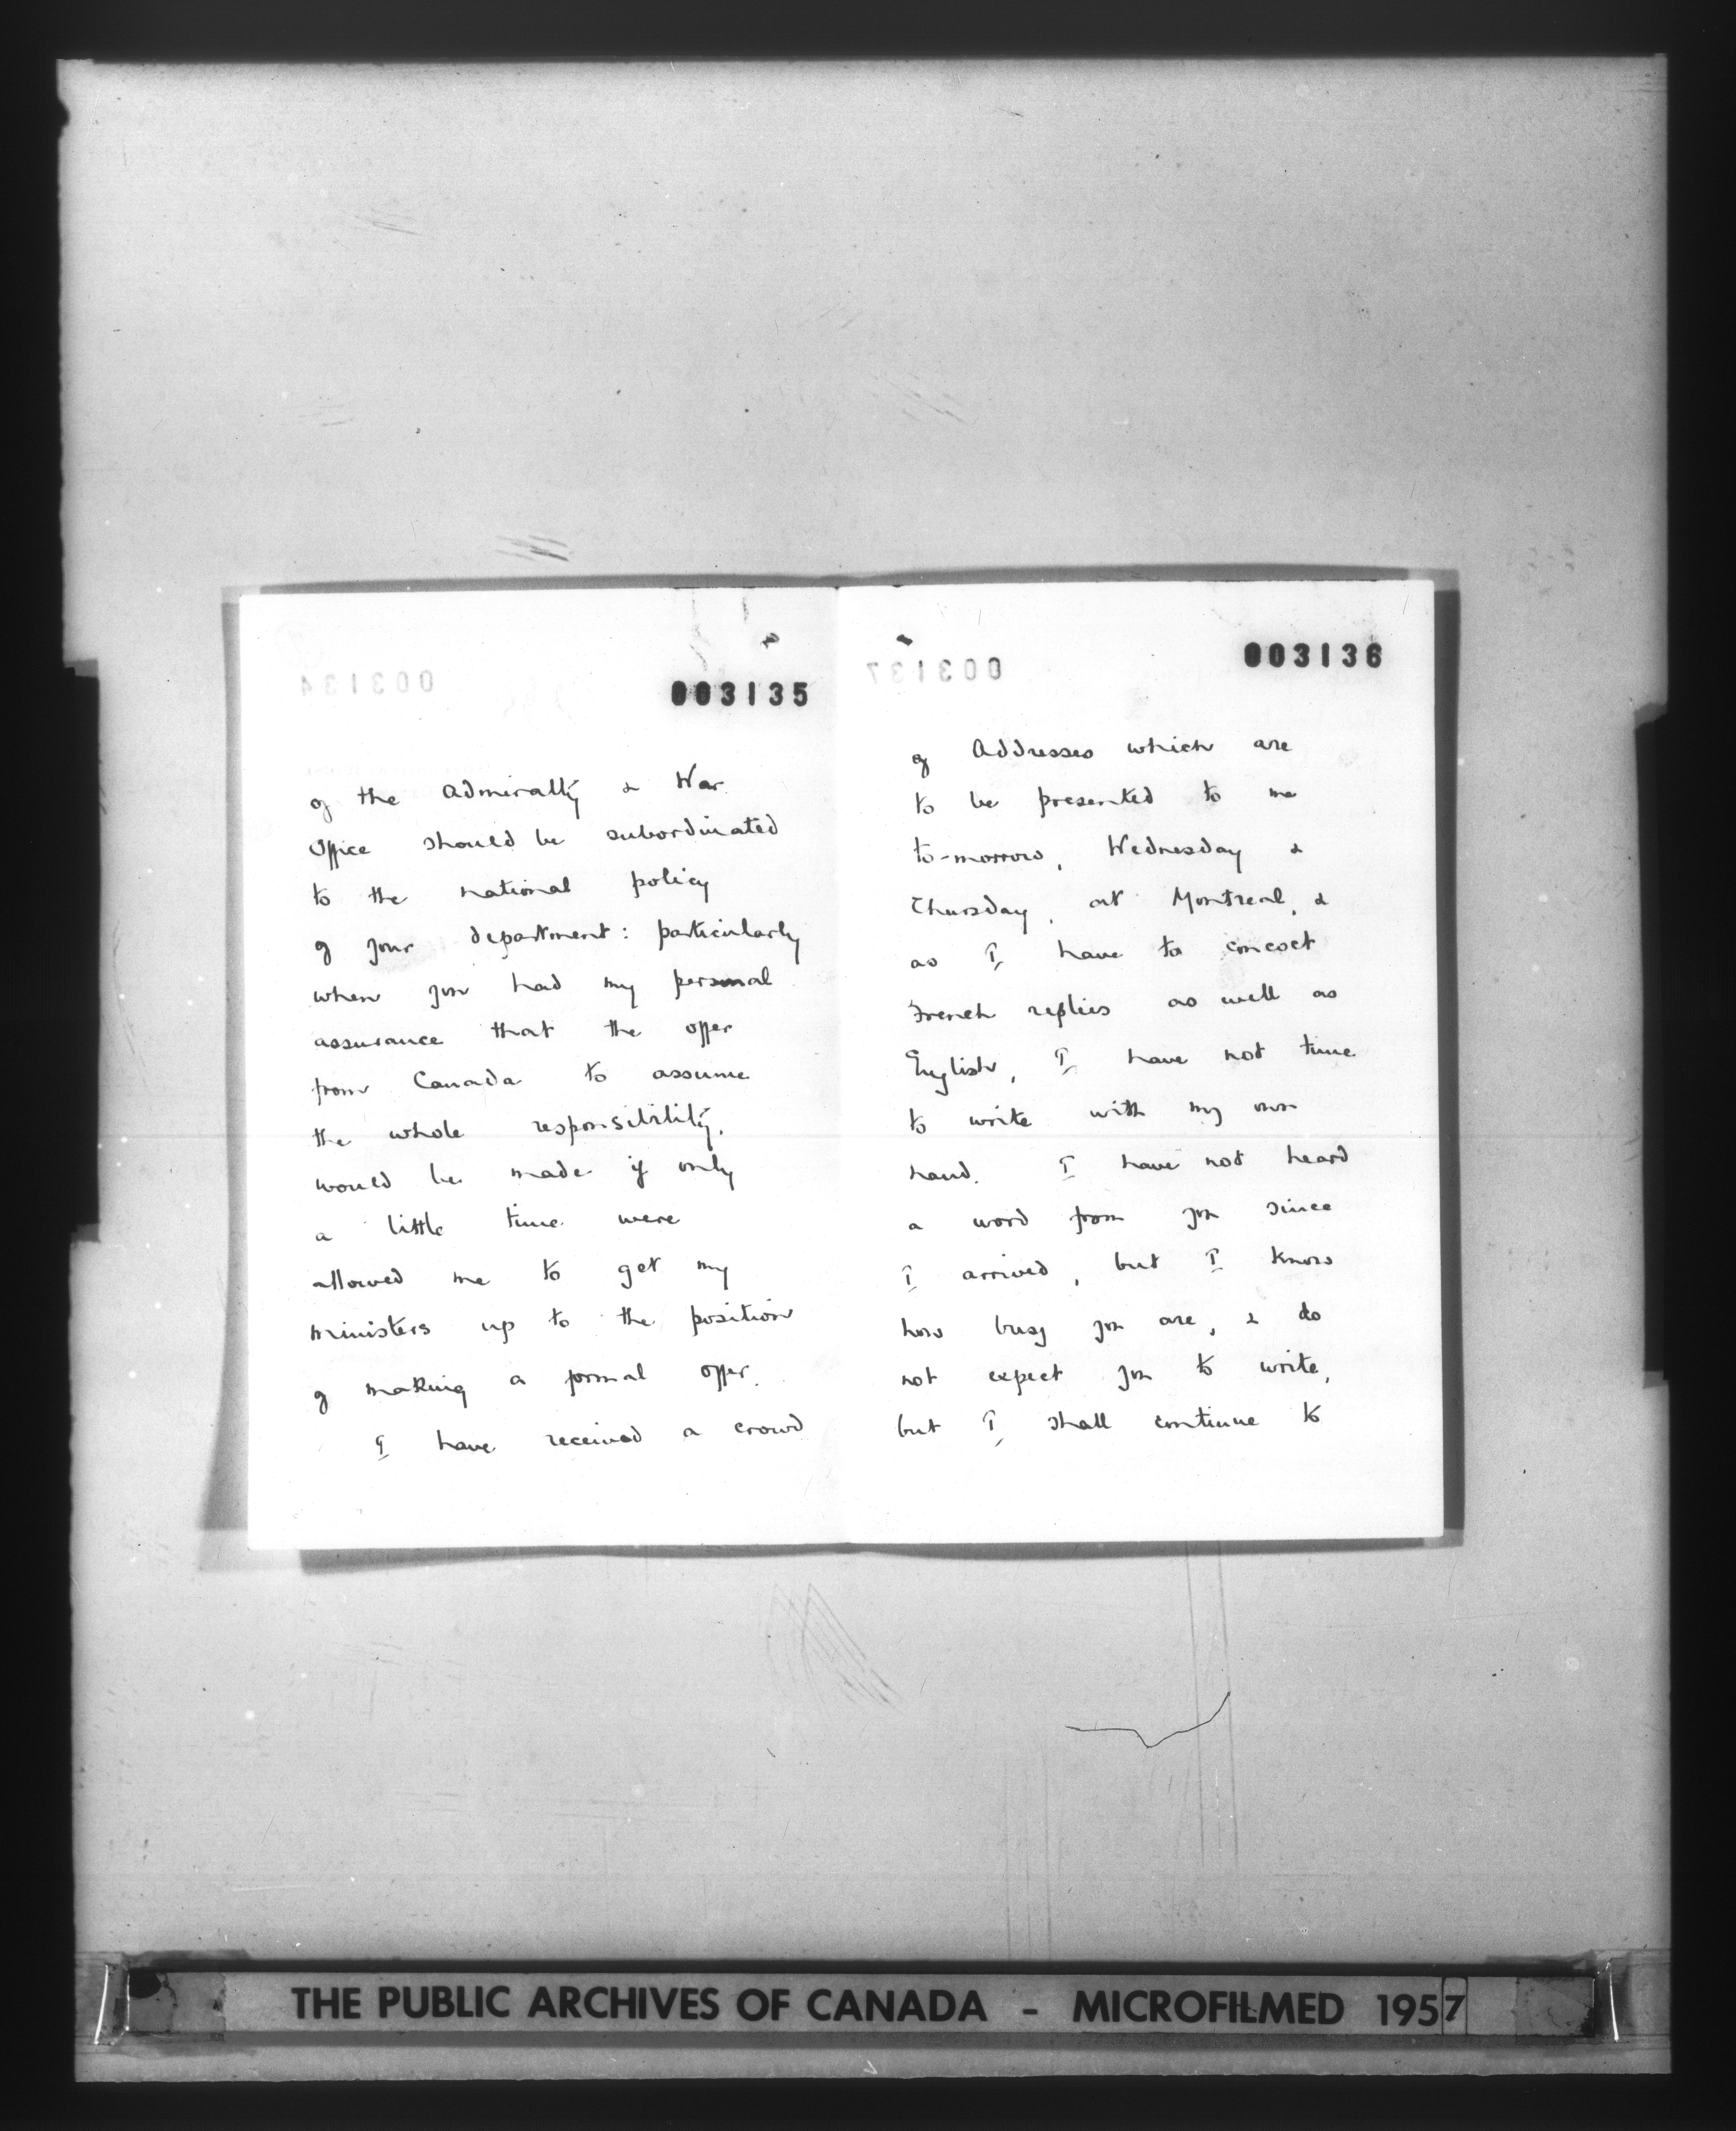 003135
of the Admiralty & War
Office should be subordinated
to the national policy
of your department: particularly
when you had my personal
assurance that the offer
from Canada to assume
the whole responsibility,
would be made if only
a little time were
allowed me to get my
ministers up to the position
of making a formal offer.
I have received a crowd
003134
003136
003137
of Addresses which are
to be presented to me
to-morrow, Wednesday &
Thursday, at Montreal, &
as I have to concoct
French replies as well as
English, I have not time
to write with my own
hand. I have not heard
a word from you since
I arrived, but I know
how busy you are, & do
not expect you to write,
but I shall continue to
THE PUBLIC ARCHIVES OF CANADA - MICROFILMED 1957